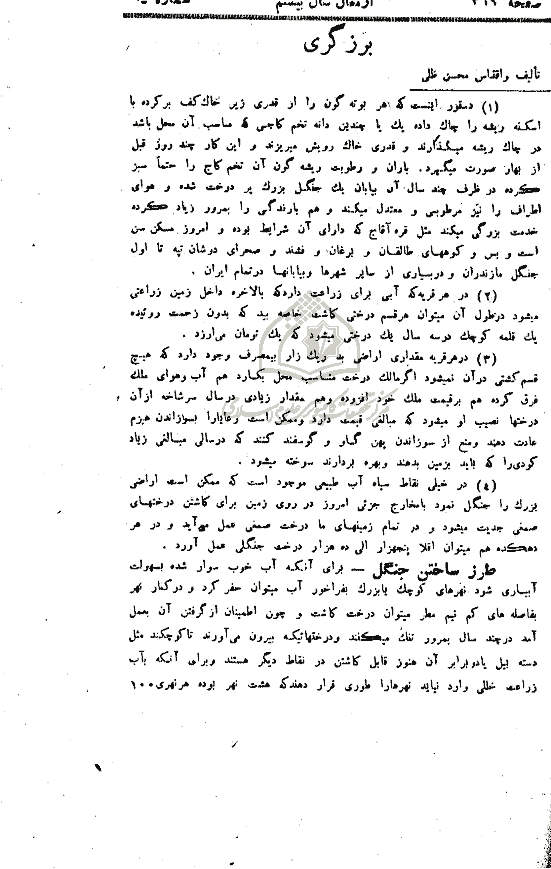 صفحه ۳۱۶ ارمغان سال بیستم شماره
برزگری
تألیف واقتباس محسن ظلی
(۱) دستور اینست که هر بوته گون را از قدری زیر خاك کف برکرده با
اسکنه ریشه را چاك داده یك یا چندین دانه تخم کاجی که مناسب آن محل باشد
در چاك ریشه میگذارند و قدری خاك رویش میریزند و این کار چند روز قبل
از بهار صورت میگیرد. باران و رطوبت ریشه گون آن تخم کاج را حتماً سبز
کرده در ظرف چند سال آن بیابان یك جنگل بزرك پر درخت شده و هوای
اطراف را نیز مرطوبی و معتدل میکند و هم بارندگی را بمرور زیاد کرده
خدمت بزرگی میکند مثل قره آقاج که دارای آن شرایط بوده و امروز مسکن سن
است و بس و کوههای طالقان و برغان و فشند و صحرای دوشان تپه تا اول
جنگل مازندران و دربسیاری از سایر شهرها وبیابانها درتمام ایران .
(۲) در هرقریه که آبی برای زراعت داردکه بالاخره داخل زمین زراعتی
میشود درطول آن میتوان هرقسم درختی کاشت خاصه بید که بدون زحمت روئیده
یك قلمه کوچك درسه سال یك درختی میشود که یك تومان می‌ارزد .
(۳) درهرقریه مقداری اراضی بد ریك زار بیمصرف وجود دارد که هیچ
قسم کشتی درآن نمیشود اگرمالك درخت متناسب محل بکارد هم آب وهوای ملك
فرق کرده هم برقیمت ملك خود افزوده وهم مقدار زیادی درسال سرشاخه ازآن
درختها نصیب او میشود که مبالغی قیمت دارد وممکن است رعایارا بسوزاندن هیزم
عادت دهند ومنع از سوزاندن پهن گاو و گوسفند کنند که درسالی مبالغی زیاد
کودی را که باید بزمین بدهند وبهره بردارند سوخته میشود .
(٤) در خیلی نقاط سیاه آب طبیعی موجود است که ممکن است اراضی
بزرك را جنگل نمود بامخارج جزئی امروز در روی زمین برای کاشتن درختهای
صمغی جدیت میشود و در تمام زمینهای ما درخت صمغی عمل می‌آید و در هر
دهکده هم میتوان اقلا پنجهزار الی ده هزار درخت جنگلی عمل آورد .
طرز ساختن جنگل — برای آنکه آب خوب سوار شده بسهولت
آبیاری شود نهرهای کوچك یابزرك بفراخور آب میتوان حفر کرد و درکنار نهر
بفاصله های کم نیم مطر میتوان درخت کاشت و چون اطمینان ازگرفتن آن بعمل
آمد درچند سال بمرور تنك میکنند ودرختهائیکه بیرون می‌آورند تاکوچکند مثل
دسته بیل یادوبرابر آن هنوز قابل کاشتن در نقاط دیگر هستند وبرای آنکه بآب
زراعت خللی وارد نیاید نهرهارا طوری قرار دهندکه هشت نهر بوده هرنهری ۱۰۰